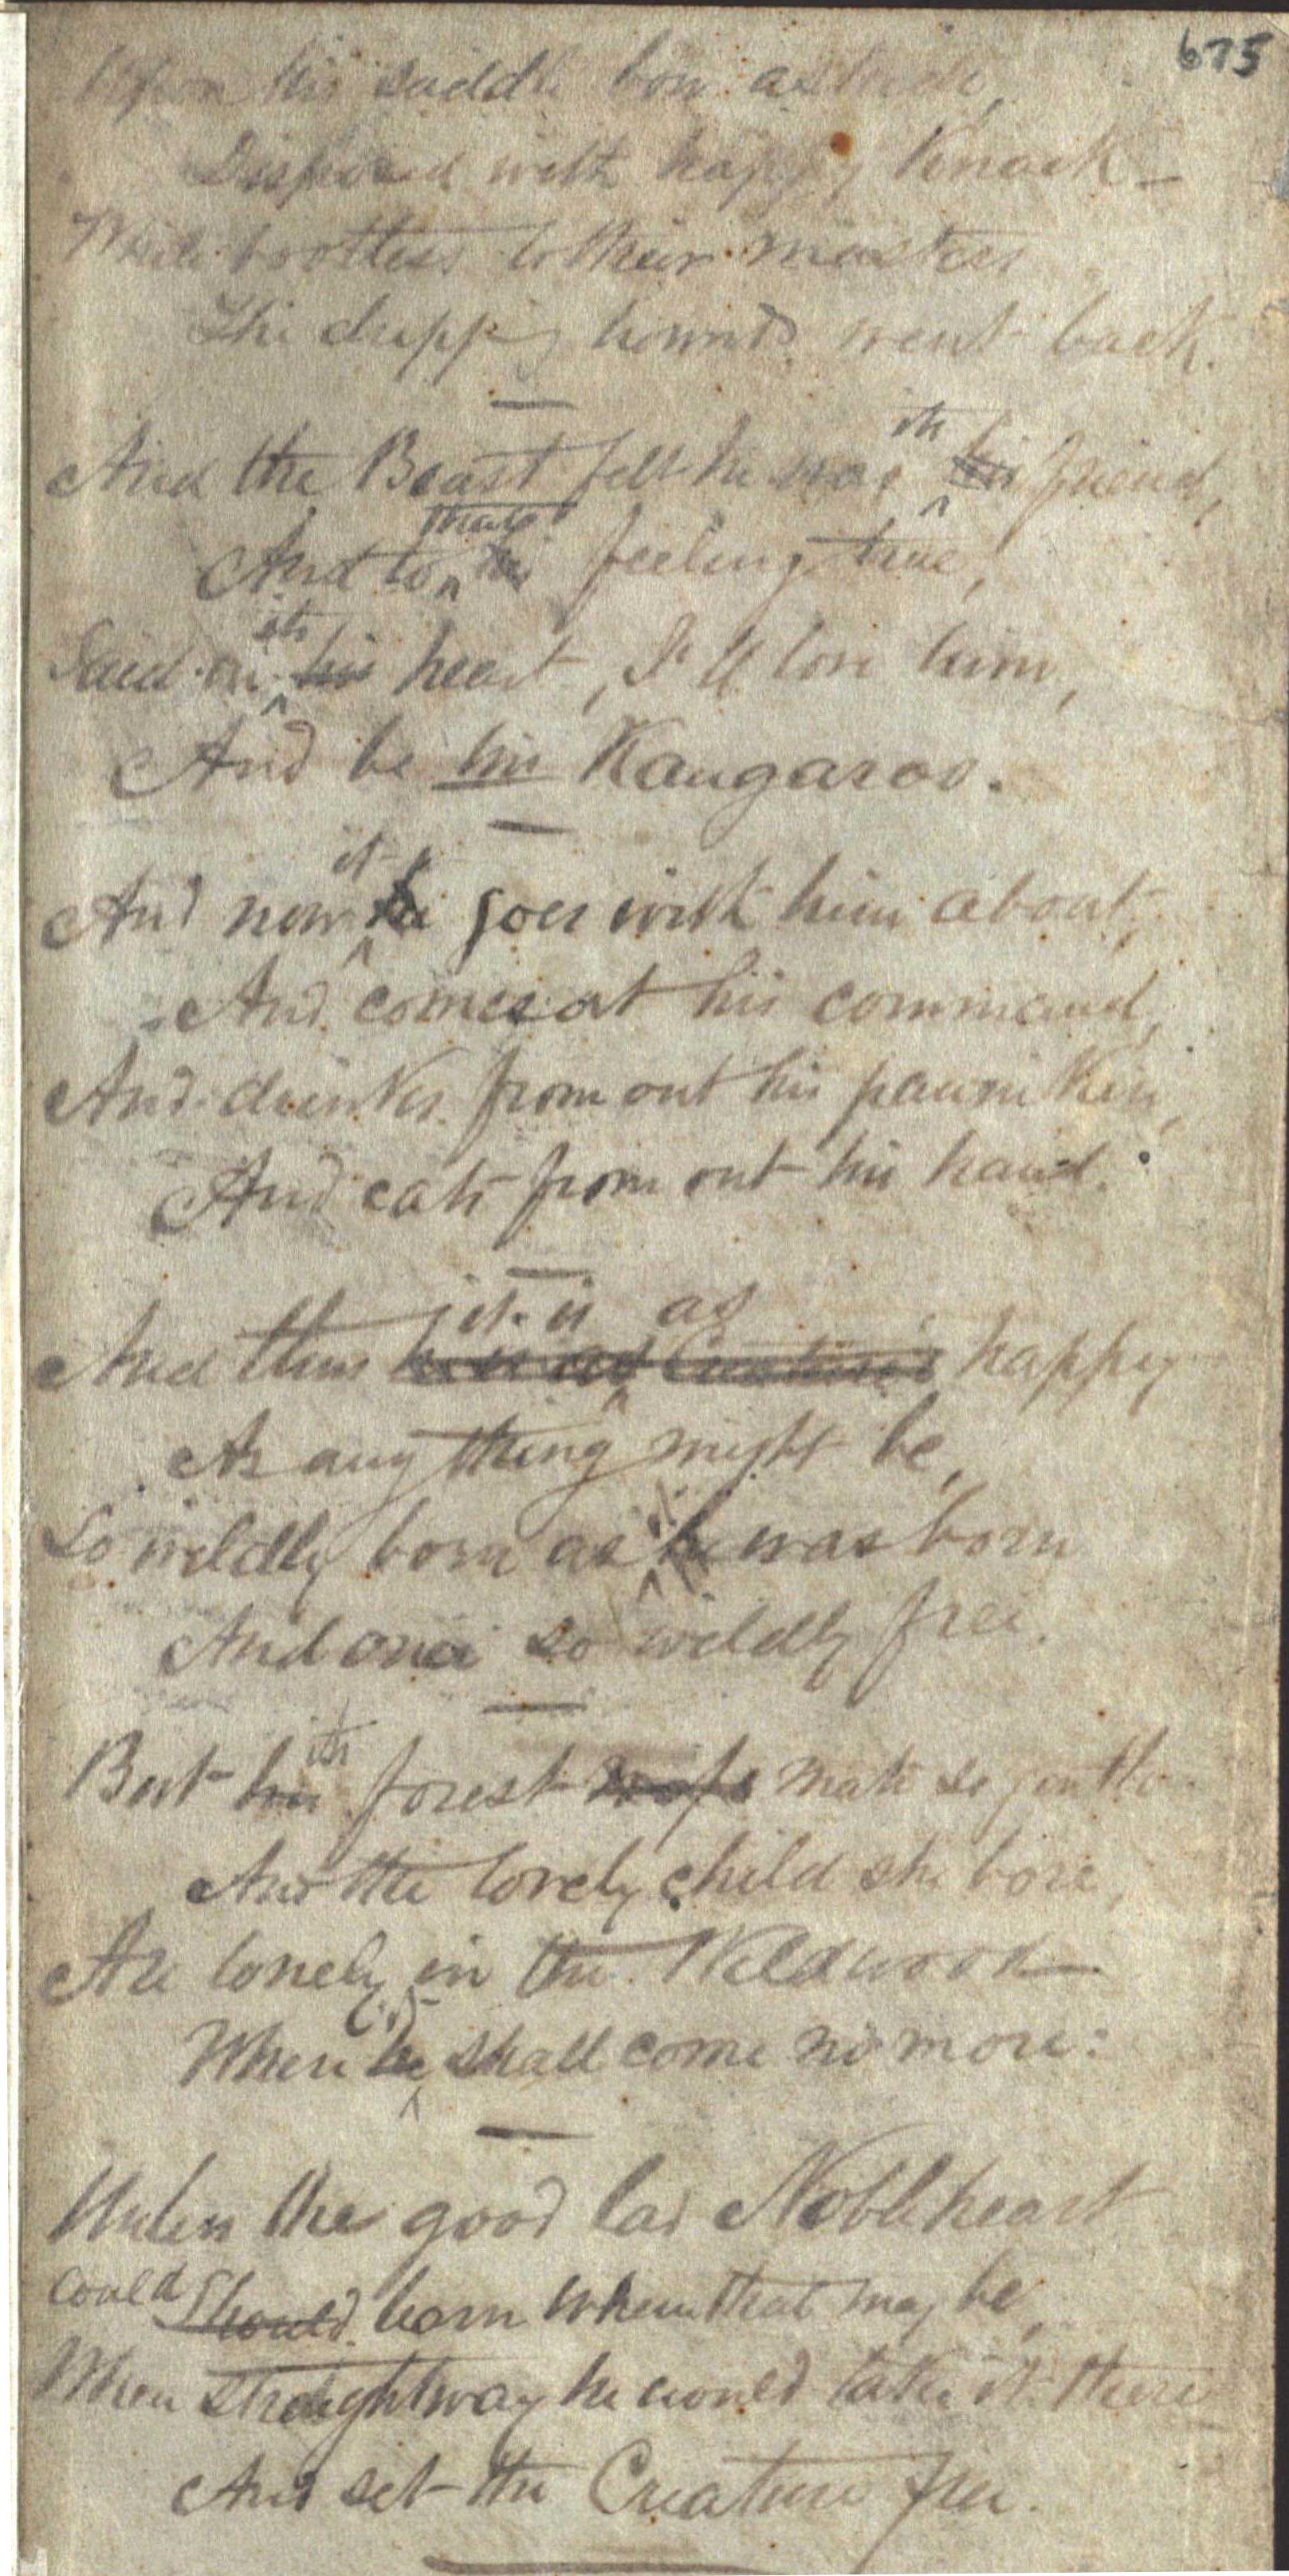 675
Upon his saddle bow astride,
Disposed with happy knack—
While bootless to their masters
The dupped hounds went back.
And the Beast felt he was its his friend,
And to that this feeling true,
Said in its his heart, I'll love him,
And be his Kangaroo.
And now it he goes with him about,
And comes at his command,
And drinks from out his pannikin,
And eats from out his hand.
And thus it is as happy
As anything might be,
So wildly born as it he was born
And once so wildly free.
But his its forest wife mate so gentle
And the lovely child she bore,
Are lonely in the Wildwood
Where it he shall come no more:
Unless the good lad Nobleheart
Could Should learn where that may be,
When straightway he would take it there
And set the Creature free.